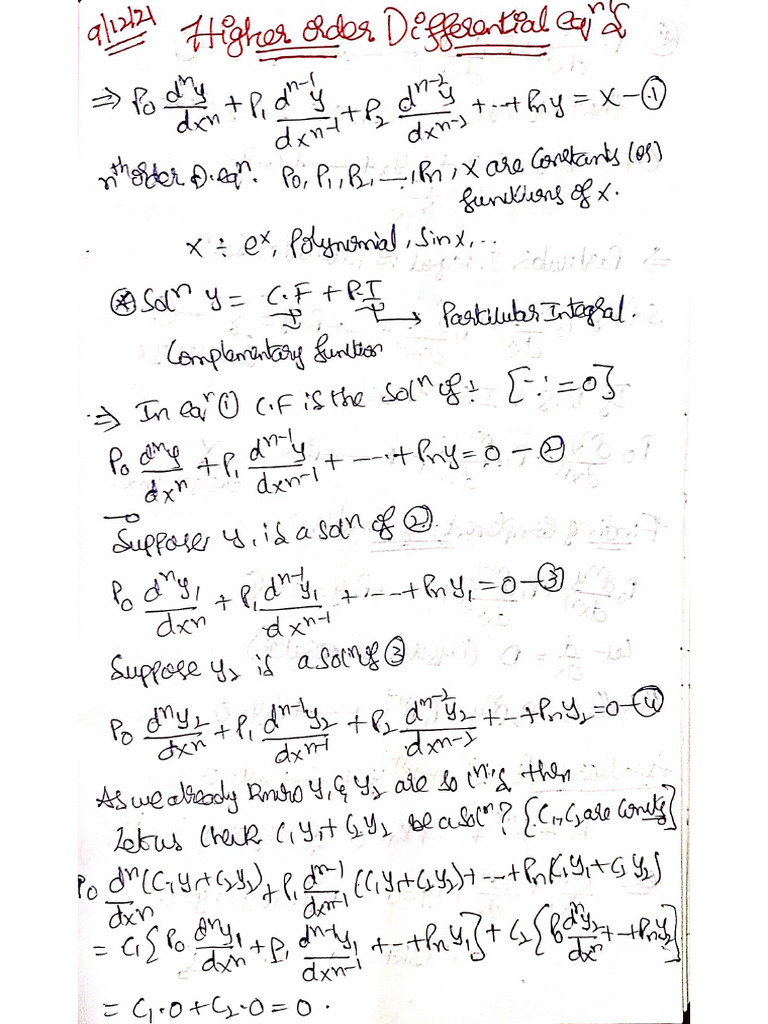 9/12/21 Higher order Differential eqⁿs
⇒ P₀ dⁿy/dxⁿ + P₁ dⁿ⁻¹y/dxⁿ⁻¹ + P₂ dⁿ⁻²y/dxⁿ⁻² + --+ Pₙy = X –①
nᵗʰ order D.eqⁿ. P₀, P₁, P₂, –, Pₙ, X are constants (or)
functions of x.
X ÷ eˣ, Polynomial, sinx, ...
⊛ Solⁿ y = C.F + P.I
→ Particular Integral.
Complementary function
⇒ In eqⁿ ① C.F is the solⁿ of ÷ [∵ =0]
P₀ dⁿy/dxⁿ + P₁ dⁿ⁻¹y/dxⁿ⁻¹ + ---+ Pₙy = 0 – ②
Suppose y₁ is a solⁿ of ②
P₀ dⁿy₁/dxⁿ + P₁ dⁿ⁻¹y₁/dxⁿ⁻¹ + ---+ Pₙy₁ = 0 –③
Suppose y₂ is a solⁿ of ③
P₀ dⁿy₂/dxⁿ + P₁ dⁿ⁻¹y₂/dxⁿ⁻¹ + P₂ dⁿ⁻²y₂/dxⁿ⁻² +--+ Pₙy₂ = 0 –④
As we already know y₁ & y₂ are solⁿ's then
Let us check C₁y₁ + C₂y₂ be a solⁿ? {C₁, C₂ are consts}
P₀ dⁿ/dxⁿ (C₁y₁+C₂y₂) + P₁ dⁿ⁻¹/dxⁿ⁻¹ (C₁y₁+C₂y₂) + --+ Pₙ(C₁y₁+C₂y₂)
= C₁{P₀ dⁿy₁/dxⁿ + P₁ dⁿ⁻¹y₁/dxⁿ⁻¹ +--+ Pₙy₁} + C₂{P₀ dⁿy₂/dxⁿ +--+ Pₙy₂}
= C₁·0 + C₂·0 = 0.